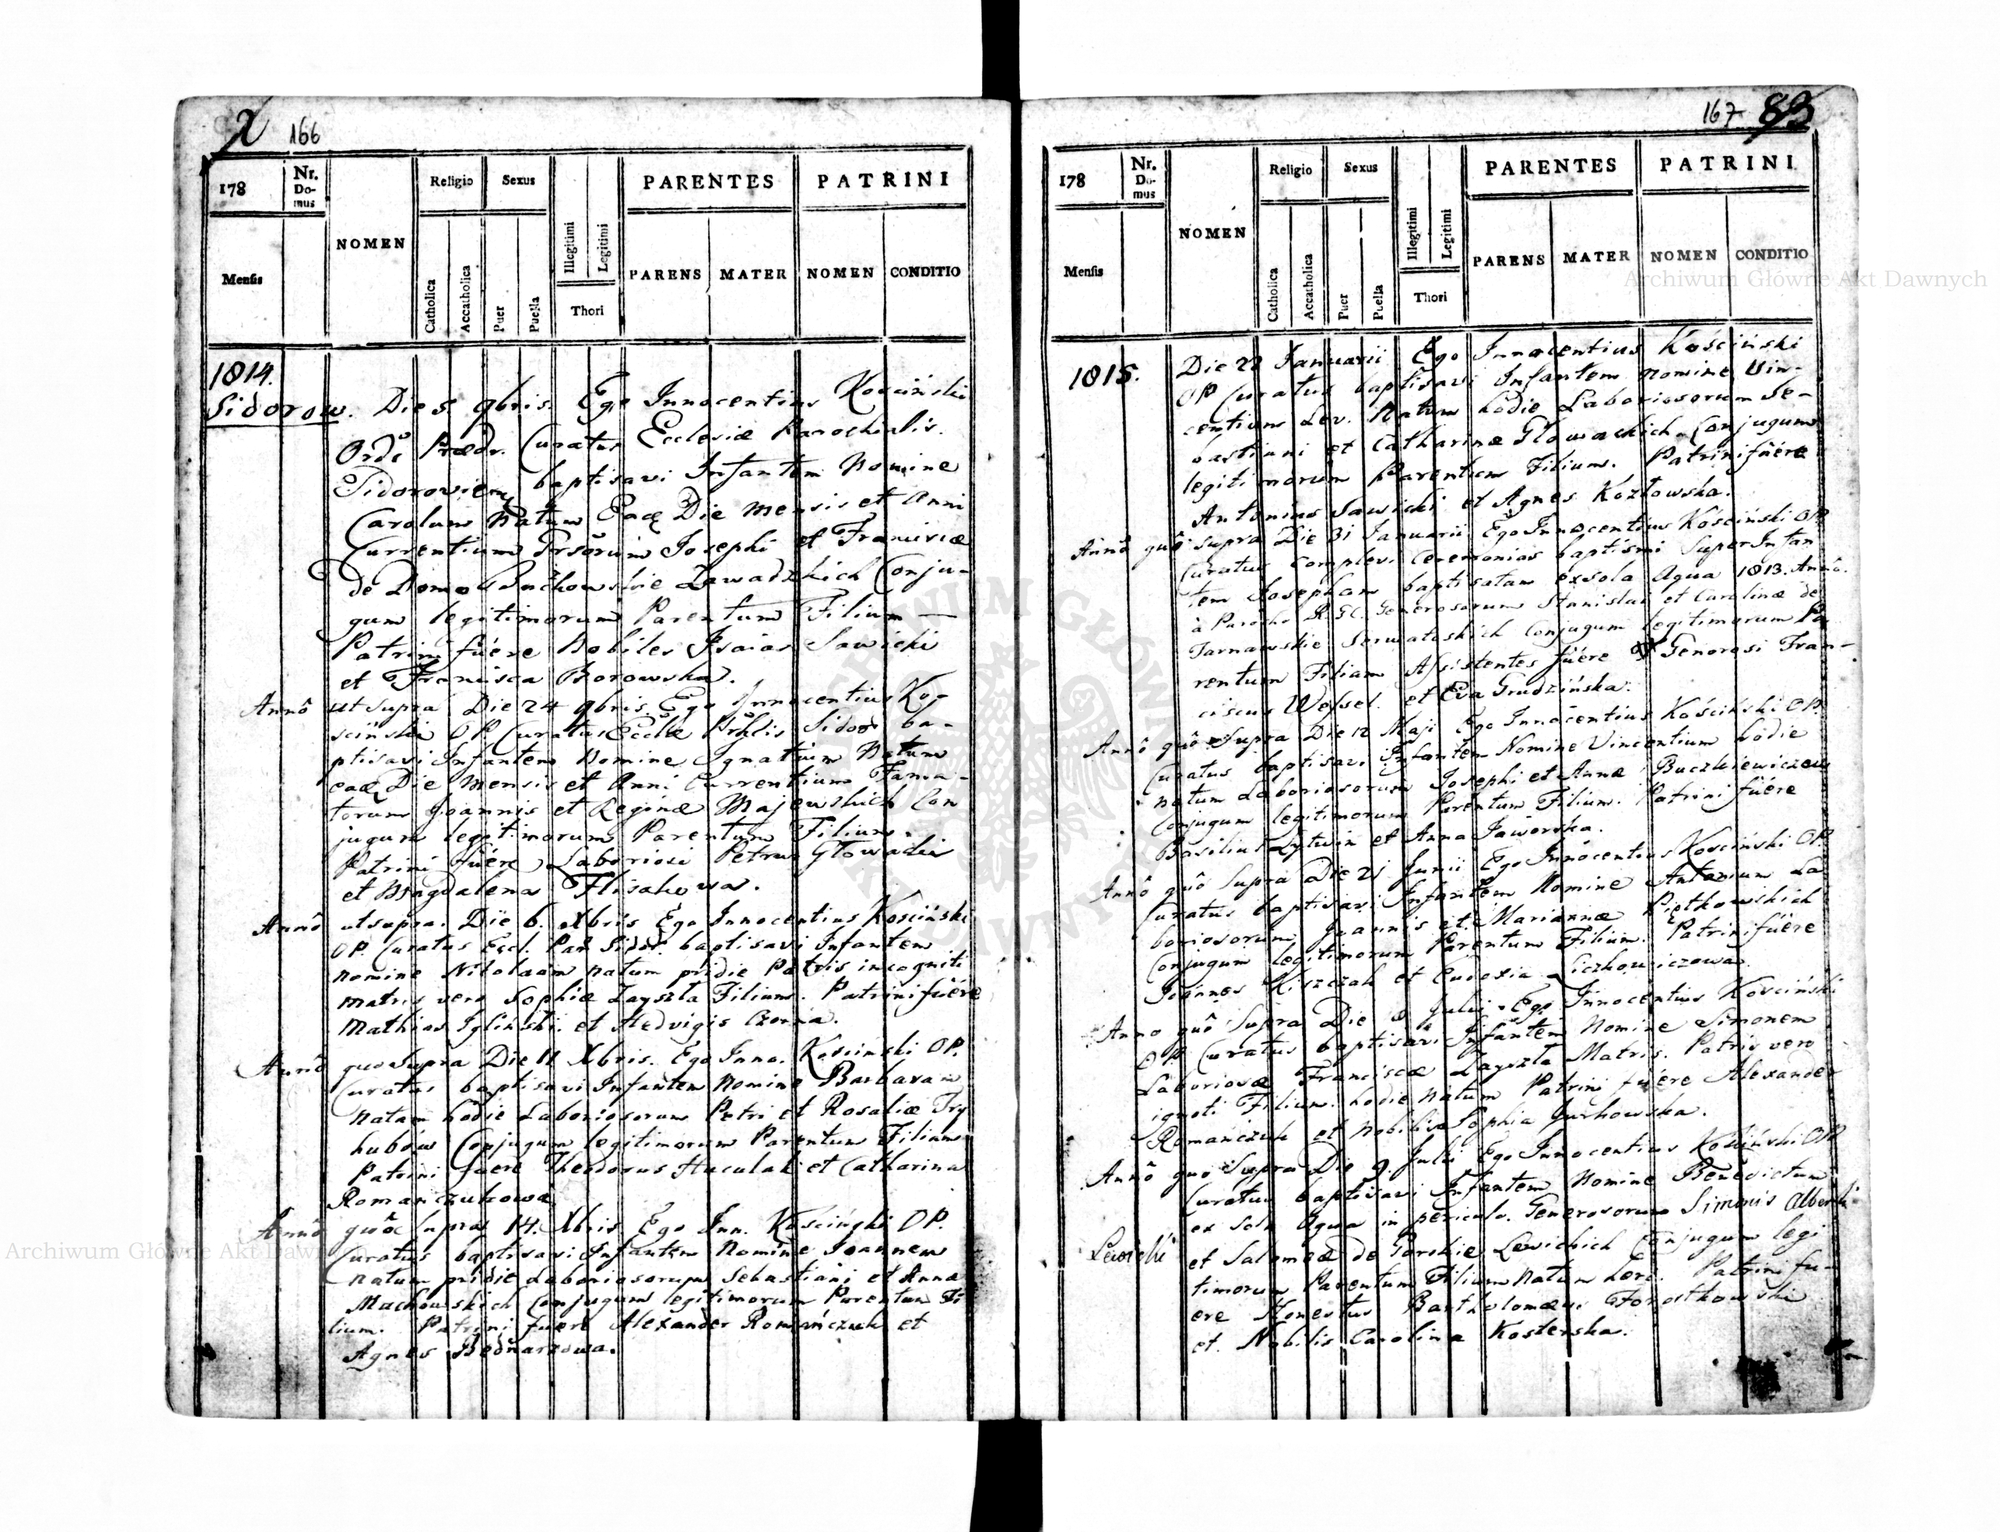 166
178
Nr. Domus
NOMEN
Religio
Sexus
Illegitimi
Legitimi
PARENTES
PATRINI
Mensis
Catholica
Accatholica
Puer
Puella
Thori
PARENS
MATER
NOMEN
CONDITIO
1814.
Sidorow. Die 5 9bris. Ego Innocentius Kosciński
Ord: Præd. Curatus Ecclesiæ Parochialis.
Sidoroviem baptisavi Infantem Nomine
Carolum Natum Eadē Die mensis et Anni
Currentium Josephi et Franciscæ
de Domo Zawadzkich Conju-
gum legitimorum Parentum Filium
Patrini fuére Nobiles Isaias Sawicki
et Francisca Borowska.
Annô ut supra Die 24 9bris Ego Innocentius Ko-
sciński OP Curatus Eccłłæ Prhlis Sidor ba-
ptisavi Infantem Nomine Ignatium Natum
eadē Die Mensis et Anni Currentium Fama-
torum Joannis et Reginæ Majewskich Con
jugum legitimorum Parentum Filium.
Patrini fuére Laboriosi Petrus Głowacki
et Magdalena Flisakowa.
Annô ut supra. Die 6. Xbris Ego Innocentius Kosciński
OP. Curatus Eccl. Par Sidor. baptisavi Infantem
nomine Nikolaum natum pridie Patris incogniti
matris vero Sophiæ Zayszła Filium. Patrini fuére
Mathias Igliński et Hedvigis Czorna.
Annô quo supra Die 11 Xbris. Ego Inno. Kosciński OP.
Curatus baptisavi Infantem Nomine Barbaram
natam hodie Laboriosorum Petri et Rosaliæ Try
hubow Conjugum legitimorum Parentum Filiam
Patrini fuere Theodorus Huculak et Catharina
Romanczukowa
Annô quô supra 14. Xbris Ego Inn. Kosciński OP.
Curatus baptisavi Infantem Nomine Joannem
natum pridie Laboriosorum Sebastiani et Annæ
Machowskich Conjugum legitimorum Parentum Fi
lium. Patrini fuere Alexander Romańczuk et
Agnes Bednarzowa.
167 83
178
Nr. Domus
NOMEN
Religio
Sexus
Illegitimi
Legitimi
PARENTES
PATRINI
Mensis
Catholica
Accatholica
Puer
Puella
Thori
PARENS
MATER
NOMEN
CONDITIO
1815. Die 22 Januarii Ego Innocentius Kościński
OP Curatus baptisavi Infantem nomine Vin-
centium Lev. Natum hodie Laboriosorum Se-
bastiani et Catharinæ Głowackich Conjugum
legitimorum Parentum Filium. Patrini fuére
Antonius Sawicki et Agnes Kozłowska.
Annô quô supra Die 31 Januarii Ego Innocentius Kościński OP
Curatus complevi Ceremonias baptismi super Infan
tem Josepham baptisatam ex sola Aqua 1813. Annô.
à Parocho R. GC. Generosorum Stanislai et Carolinæ de
Tarnawskie Serwatoskich Conjugum legitimorum Pa
rentum Filiam Assistentes fuére Generosi Fran-
ciscus Wessel et Eva Grudzińska.
Annô quô supra Die 12 Maji Ego Innocentius Kościński OP.
Curatus baptisavi Infantem Nomine Vincentium hodie
natum Laboriosorum Josephi et Annæ Buczkiewiczow
Conjugum legitimorum Parentum Filium. Patrini fuére
Basilius Lytwin et Anna Jaworska.
Annô quô supra Die 21 Junii Ego Innocentius Kosciński OP.
Curatus baptisavi Infantem Nomine Antonium La
boriosorum Joannis et Mariannæ Piotkowskich
Conjugum legitimorum Parentum Filium. Patrini fuére
Joannes Kiszczak et Eudoxia Liczkowiczowa.
Anno quô supra Die 8 Julii Ego Innocentius Kosciński
OP. Curatus baptisavi Infantem Nomine Simonem
Laboriosæ Franciscæ Zayszła Matris. Patris vero
ignoti Filium hodie natum Patrini fuére Alexander
Romańczuk et Nobilis Sophia Jurkowska.
Annô quo supra Die 9 Julii Ego Innocentius Kościński OP
Curatus baptisavi Infantem Nomine Benedictum
ex sola Aqua in periculo. Generosorum Simonis Alberti
Lewicki et Salomeæ de Gorskie Lewickich Conjugum legi
timorum Parentum Filium natum heri. Patrini fu-
ere Honestus Bartholomæus Forostkowski
et Nobilis Carolina Kosterska.
Archiwum Główne Akt Dawnych
Archiwum Główne Akt Dawnych
ARCHIWUM GŁÓWNE AKT DAWNYCH